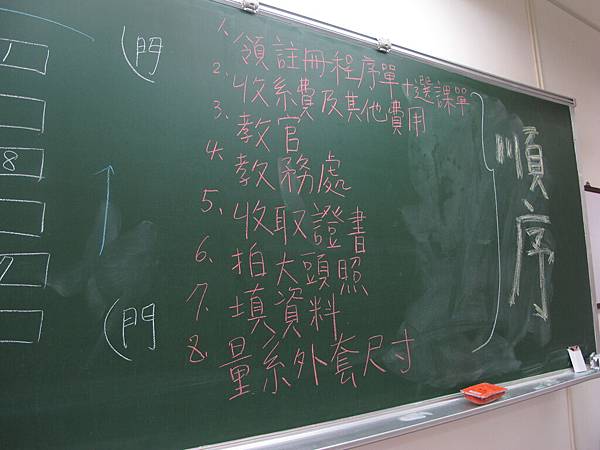 1. 領註冊程序單+選課單
2. 收系費及其他費用
3. 教官
4. 教務處
5. 收取證書
6. 拍大頭照
7. 填資料
8. 量系外套尺寸
順序
(門
(門
1
8